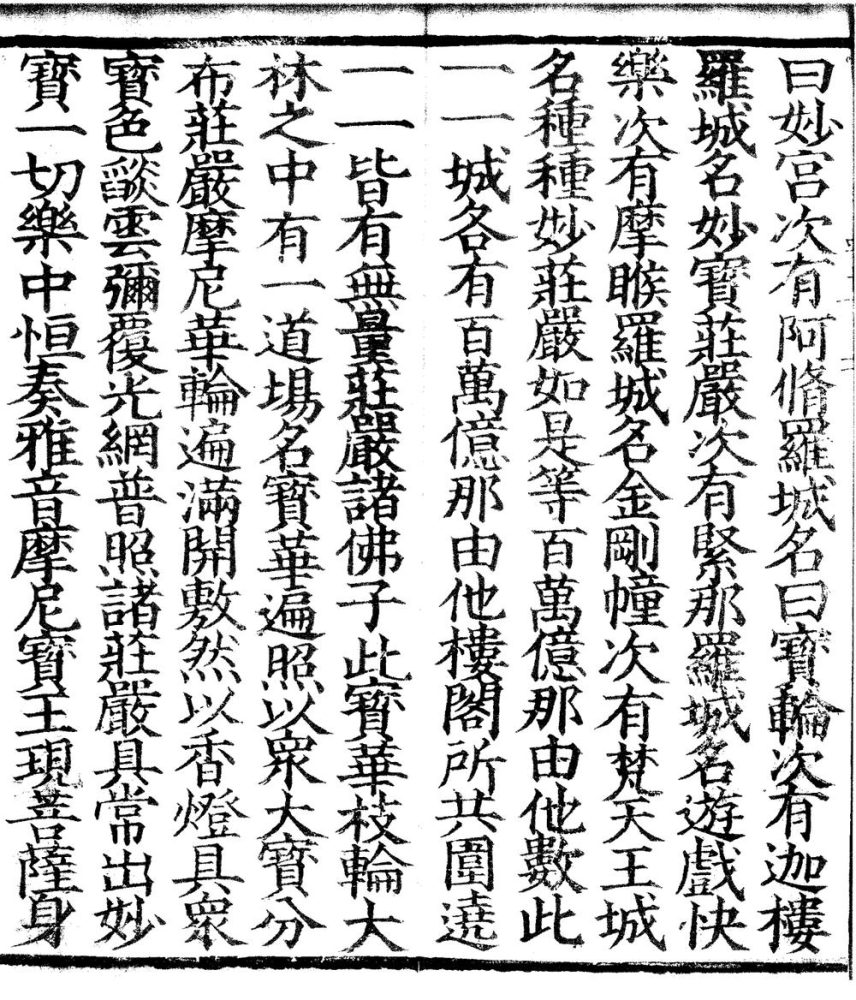 曰妙宫次有阿脩羅城名曰寶輪次有迦樓
羅城名妙寶莊嚴次有緊那羅城名遊戲快
樂次有摩睺羅城名金剛幢次有梵天王城
名種種妙莊嚴如是等百萬億那由他數此
一一城各有百萬億那由他樓閣所共圍遶
一一皆有無量莊嚴諸佛子此寶華枝輪大
林之中有一道場名寶華遍照以衆大寶分
布莊嚴摩尼華輪遍滿開敷然以香燈具衆
寶色燄雲彌覆光網普照諸莊嚴具常出妙
寶一切樂中恒奏雅音摩尼寶王現菩薩身